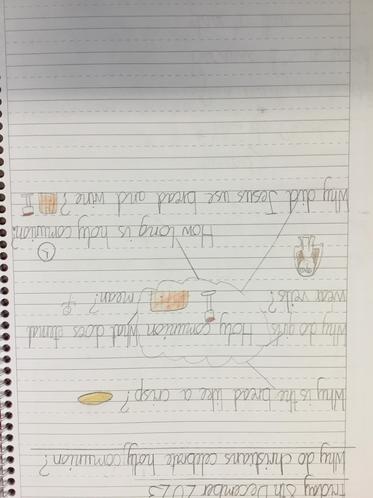 Friday 8th December 2023
Why do christians celebrate holy comunion?
Why is the bread like a crisp?
Why do girls
wear veils?
Holy comunion
What does eternal
mean?
How long is holy comunion?
Why did Jesus use bread and wine?